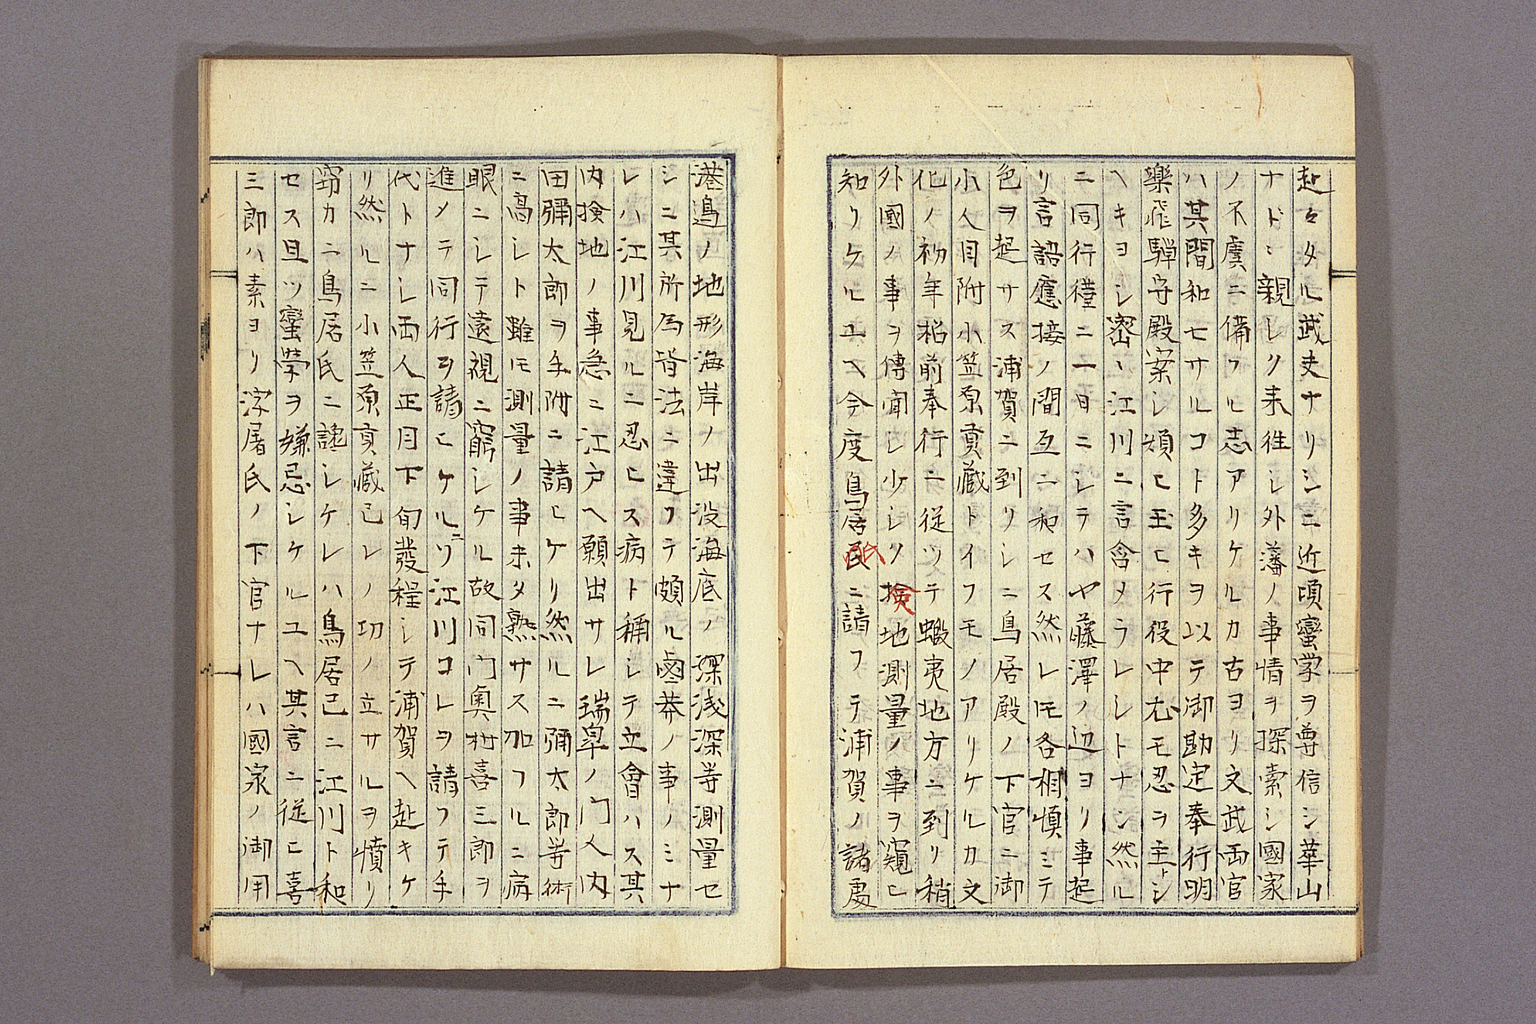 赳々タル武夫ナリシニ近頃蠻学ヲ尊信シ華山
ナドヽ親シク来往シ外藩ノ事情ヲ探索シ國家
ノ不虞ニ備フル志アリケルカ古ヨリ文武両官
ハ其間和セサルコト多キヲ以テ御勘定奉行明
樂飛騨守殿案シ煩ヒ玉ヒ行役中尤モ忍ヲ主トシ
ヘキヨシ密ヽ江川ニ言含メラレシトナン然ル
ニ同行僅ニ一日ニシテハヤ藤澤ノ辺ヨリ事起
リ言語應接ノ間互ニ和セス然レ𪜈各相慎ミテ
色ヲ起サス浦賀ニ到リシニ鳥居殿ノ下官ニ御
小人目附小笠原貢藏トイフモノアリケルカ文
化ノ初年松前奉行ニ従ツテ蝦夷地方ニ到リ稍
外國ノ事ヲ傳聞シ少シク検地測量ノ事ヲ窺ヒ
知リケルユヘ今度鳥居氏ニ請フテ浦賀ノ諸處
港邉ノ地形海岸ノ出没海底ノ深浅深等測量セ
シニ其所為皆法ニ違フテ頗ル鹵莽ノ事ノミナ
レハ江川見ルニ忍ヒス病ト稱シテ立會ハス其
内検地ノ事急ニ江戸ヘ願出サレ瑞皐ノ門人内
田彌太郎ヲ手附ニ請ヒケリ然ルニ彌太郎等術
ニ高シト雖モ測量ノ事未タ熟サス加フルニ病
眼ニシテ遠視ニ窮シケル故同門奥村喜三郎ヲ
進メテ同行ヲ請ヒケルニソ江川コレヲ請フテ手
代トナシ両人正月下旬發程シテ浦賀ヘ赴キケ
リ然ルニ小笠原貢藏己レノ功ノ立サルヲ憤リ
窃カニ鳥居氏ニ讒シケレハ鳥居已ニ江川ト和
セス且ツ蠻学ヲ嫌忌シケルユヘ其言ニ従ヒ喜
三郎ハ素ヨリ浮屠氏ノ下官ナレハ國家ノ御用